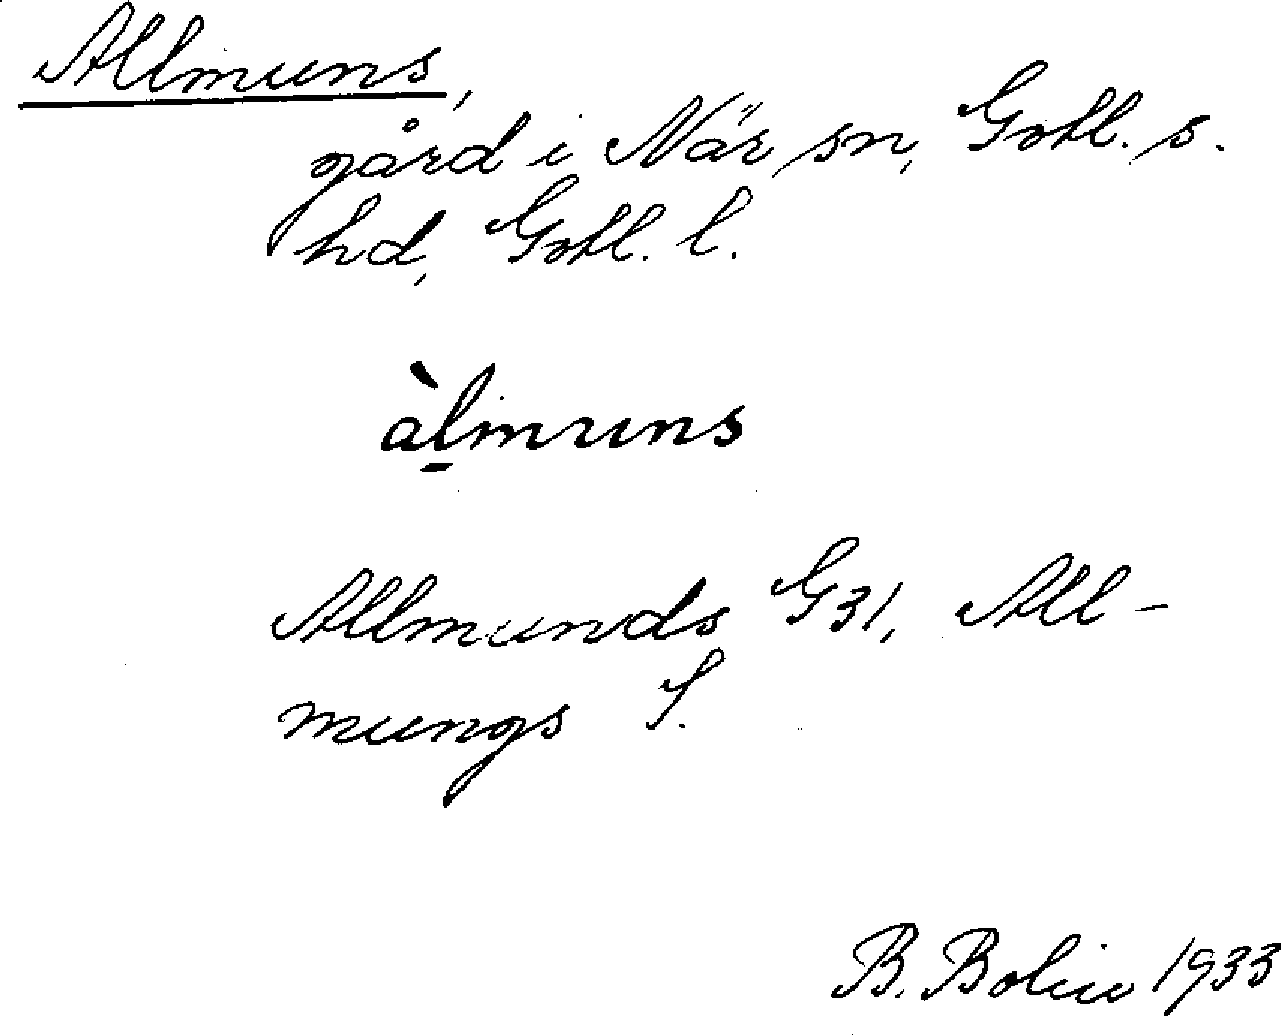 Allmuns,
gård i När sn, Gotl. s.
hd, Gotl. l.
àl̠muns
Allmunds G31, All-
mungs S.
B. Bolin 1933